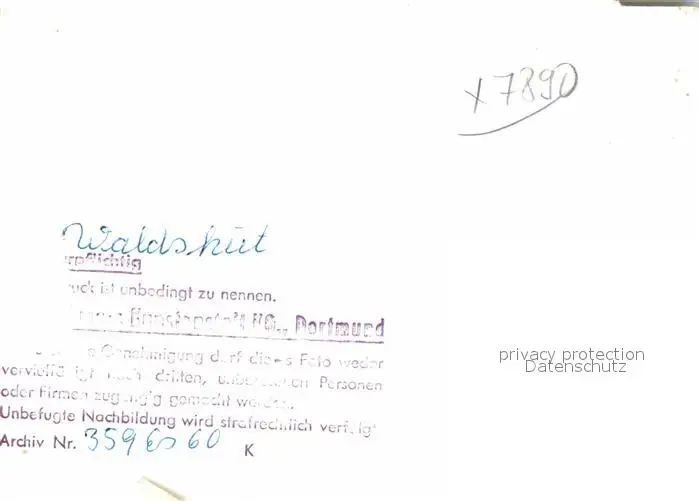 x7890
Waldshut
rpflichtig
ruck ist unbedingt zu nennen.
Kunstanstalt KG., Dortmund
Genehmigung darf dieses Foto weder
vervielfältigt noch dritten, unberufenen Personen
oder Firmen zugängig gemacht werden.
Unbefugte Nachbildung wird strafrechtlich verfolgt
Archiv Nr. 3596 60 K
privacy protection
Datenschutz